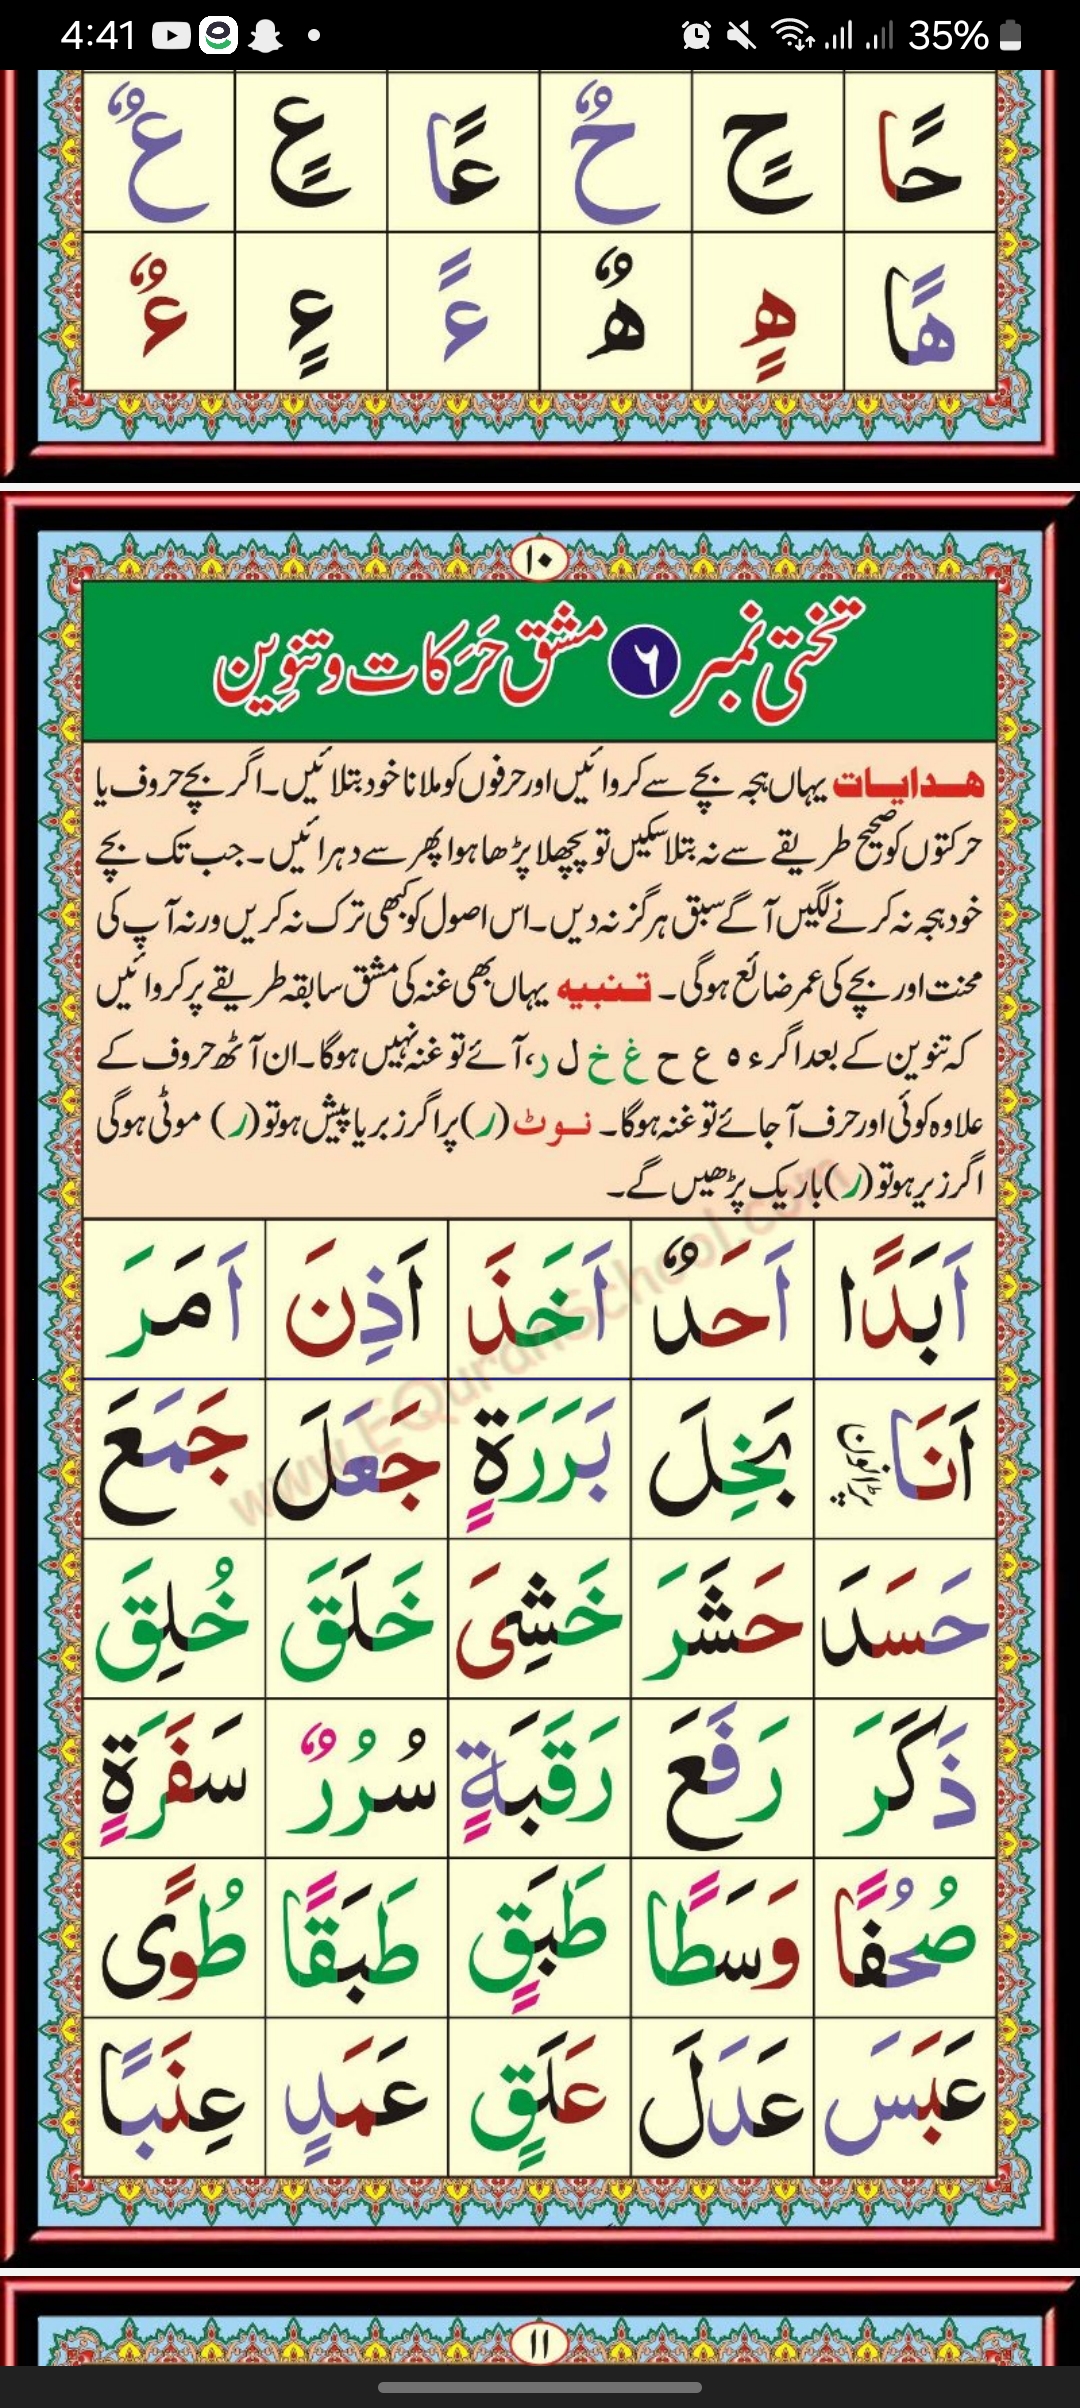 4:41 35%
حًا حٍ حٌ عًا عٍ عٌ
ھًا ھٍ ھٌ ءً ءٍ ءٌ
۱۰
تختی نمبر ۶ مشق حَرَکات و تنوِین
ھدایات یہاں ہجہ بچے سے کروائیں اور حرفوں کو ملانا خود بتلائیں۔ اگر بچے حروف یا
حرکتوں کو صحیح طریقے سے نہ بتلا سکیں تو پچھلا پڑھا ہوا پھر سے دہرائیں۔ جب تک بچے
خود ہجہ نہ کرنے لگیں آگے سبق ہرگز نہ دیں۔ اس اصول کو کبھی ترک نہ کریں ورنہ آپ کی
محنت اور بچے کی عمر ضائع ہوگی۔ تنبیہ یہاں بھی غنہ کی مشق سابقہ طریقے پر کروائیں
کہ تنوین کے بعد اگر ء ہ ع ح غ خ ل ر، آئے تو غنہ نہیں ہوگا۔ ان آٹھ حروف کے
علاوہ کوئی اور حرف آجائے تو غنہ ہوگا۔ نوٹ (ر) پر اگر زبر یا پیش ہو تو (ر) موٹی ہوگی
اگر زیر ہو تو (ر) باریک پڑھیں گے۔
اَبَدًا اَحَدٌ اَخَذَ اَذِنَ اَمَرَ
اَنَا بَخِلَ بَرَرَةٍ جَعَلَ جَمَعَ
حَسَدَ حَشَرَ خَشِیَ خَلَقَ خُلِقَ
ذَکَرَ رَفَعَ رَقَبَةٍ سُرُرٌ سَفَرَةٍ
صُحُفًا وَسَطًا طَبَقٍ طَبَقًا طُوًی
عَبَسَ عَدَلَ عَلَقٍ عَمَدٍ عِنَبًا
www.EQuranSchool.com
۱۱